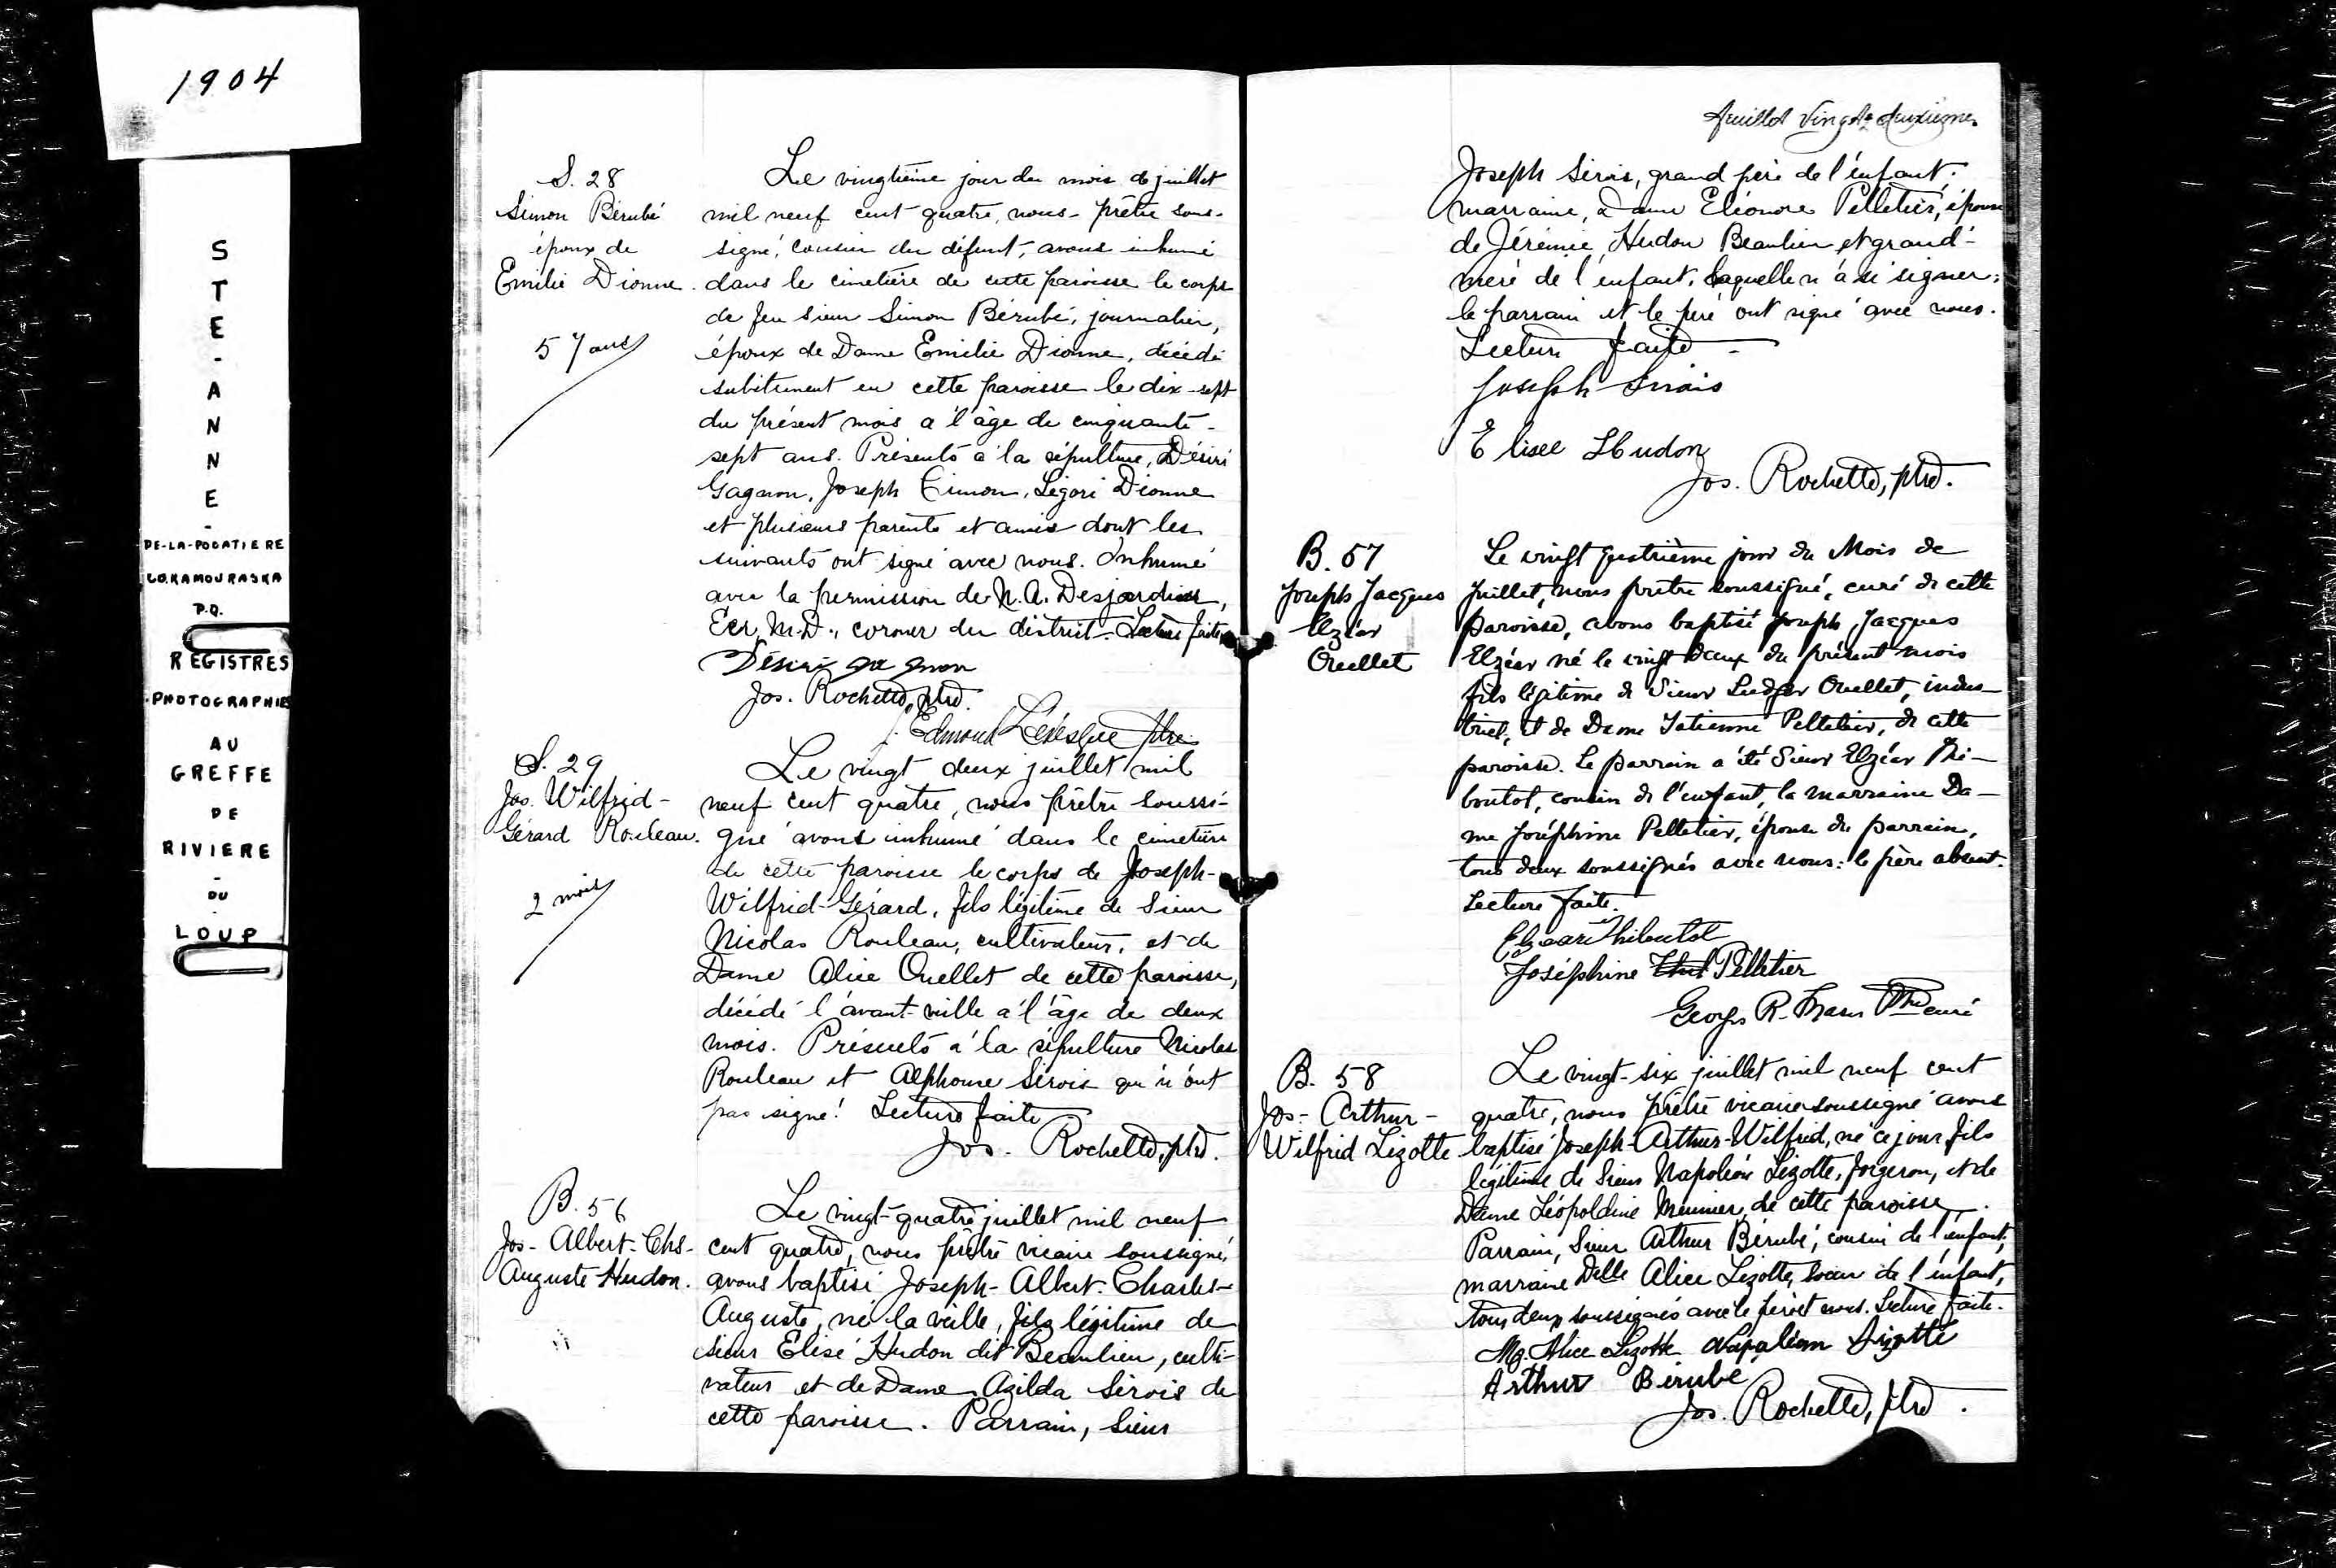 1904
STE-ANNE-
DE-LA-POCATIERE
CO. KAMOURASKA
P.Q.
REGISTRES
PHOTOGRAPHIES
AU
GREFFE
DE
RIVIERE
-
DU
LOUP
S. 28
Simon Bérubé
époux de
Emilie Dionne.
57 ans
Le vingtième jour du mois de juillet
mil neuf cent quatre, nous prêtre sous-
signé, cousin du défunt, avons inhumé
dans le cimetière de cette paroisse le corps
de feu sieur Simon Bérubé, journalier,
époux de Dame Emilie Dionne, décédé
subitement en cette paroisse le dix-sept
du présent mois a l'âge de cinquante-
sept ans. Présents à la sépulture, Désiré
Gagnon, Joseph Timon, Ligori Dionne
et plusieurs parents et amis dont les
suivants ont signé avec nous. Inhumé
avec la permission de N. A. Desjardins,
Ecr, M.D., coroner du district. Lecture faite
Désiré gagnon
Jos. Rochette, ptre.
J. Edmond Lévesque Ptre
S. 29
Jos. Wilfrid-
Gérard Rouleau.
2 mois
Le vingt deux juillet mil
neuf cent quatre, nous prêtre soussi-
gné avons inhumé dans le cimetière
de cette paroisse le corps de Joseph-
Wilfrid-Gérard, fils légitime de Sieur
Nicolas Rouleau, cultivateur, et de
Dame Alice Ouellet de cette paroisse,
décédé l'avant-veille a l'âge de deux
mois. Présents à la sépulture Nicolas
Rouleau et Alphonse Sirois qui n'ont
pas signé. Lecture faite
Jos. Rochette, ptre.
B. 56
Jos-Albert-Chs-
Auguste Hudon.
Le vingt-quatre juillet mil neuf
cent quatre, nous prêtre vicaire soussigné,
avons baptisé Joseph-Albert-Charles-
Auguste, né la veille, fils légitime de
sieur Elisé Hudon dit Beaulieu, culti-
vateur et de Dame Azilda Sirois de
cette paroisse. Parrain, Sieur
feuillet vingt-deuxième
Joseph Sirois, grand père de l'enfant.
marraine, Dame Eléonore Pelletier, épouse
de Jérémie Hudon Beaulieu et grand-
mère de l'enfant, laquelle n'a su signer;
le parrain et le père ont signé avec nous.
Lecture faite
Joseph Sirois
Elisee Hudon
Jos. Rochette, ptre.
B. 57
Joseph Jacques
Elzéar
Ouellet
Le vingt quatrième jour du Mois de
Juillet, nous prêtre soussigné, curé de cette
paroisse, avons baptisé Joseph Jacques
Elzéar né le vingt deux du présent mois
fils légitime de Sieur Ludger Ouellet, indus-
triel, et de Dame Tatienne Pelletier, de cette
paroisse. Le parrain a été Sieur Elzéar Thi-
boutot, cousin de l'enfant, la marraine Da-
me Joséphine Pelletier, épouse du parrain,
tous deux soussignés avec nous: le père absent.
Lecture faite.
Elzear Thiboutot
Joséphine Pelletier
Georges R. Fraser Ptre curé
B. 58
Jos-Arthur-
Wilfrid Lizotte
Le vingt-six juillet mil neuf cent
quatre, nous prêtre vicaire soussigné avons
baptisé Joseph-Arthur-Wilfrid, né ce jour, fils
légitime de Sieur Napoléon Lizotte, forgeron, et de
Dame Léopoldine Meunier, de cette paroisse.
Parrain, Sieur Arthur Bérubé, cousin de l'enfant,
marraine Delle Alice Lizotte, soeur de l'enfant,
tous deux soussignés avec le père et nous. Lecture faite.
Mg. Alice Lizotte Napoléon Lizotte
Arthur Bérubé
Jos. Rochette, ptre.